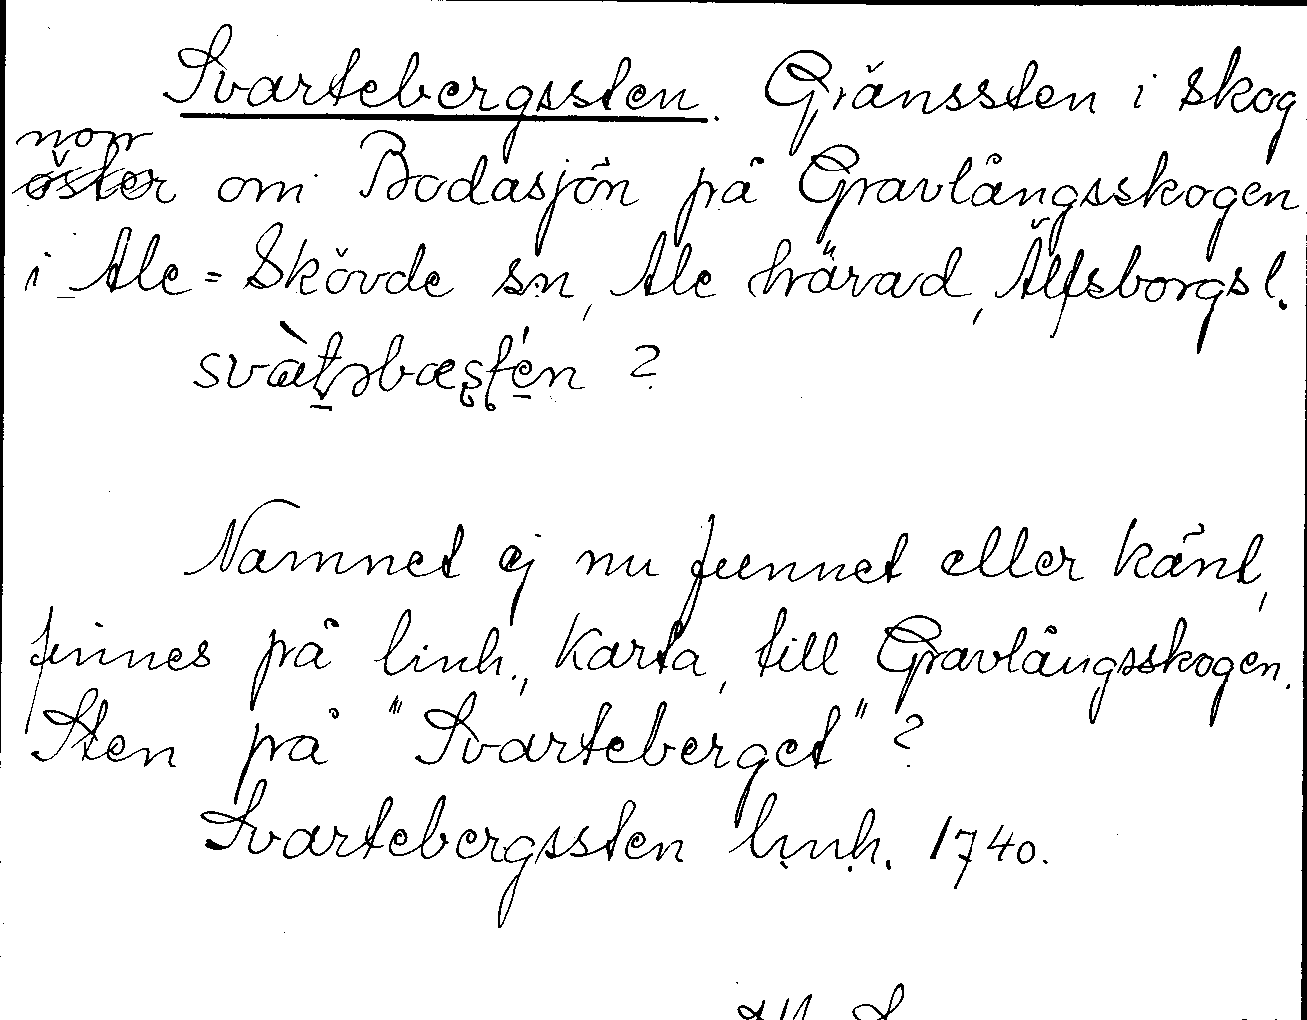 Svartebergssten. Gränssten i skog
norr
öster om Bodasjön på Gravlångsskogen
i Ale=Skövde sn, Ale härad, Älfsborgs l.
?
Namnet ej nu funnet eller känt,
finnes på linh., karta, till Gravlångsskogen.
Sten på "Svarteberget"?
Svartebergssten linh. 1740.